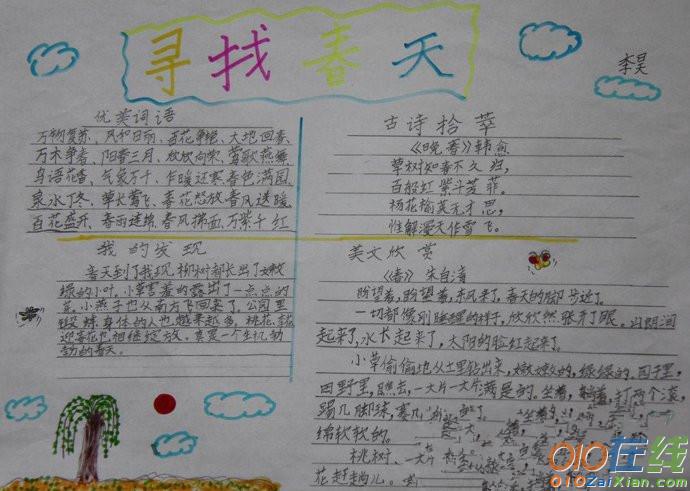 寻找春天
李昊
优美词语
万物复苏、风和日丽、百花争艳、大地回春、
万木争春、阳春三月、欣欣向荣、莺歌燕舞
鸟语花香、气象万千、乍暖还寒春色满园、
泉水丁冬、草长莺飞、春花怒放春风送暖、
百花盛开、春雨连绵、春风拂面、万紫千红
我的发现
春天到了我现,柳树都长出了嫩
绿的小叶,小草害羞的露出了一点点的
芽,小燕子也从南方飞回来了,公园里
锻炼身体的人也越来越多,桃花、杏花
迎春花也相继绽放,真是一个生机勃
勃的春天。
古诗拾萃
《晚春》韩愈
草树知春不久归,
百般红紫斗芳菲。
杨花榆荚无才思,
惟解漫天作雪飞。
美文欣赏
《春》 朱自清
盼望着,盼望着,东风来了,春天的脚步近了。
一切都像刚睡醒的样子,欣欣然张开了眼。山朗润
起来了,水长起来了,太阳的脸红起来了。
小草偷偷地从土里钻出来,嫩嫩的,绿绿的。园子里,
田野里,瞧去,一大片一大片满是的。坐着,躺着,打两个滚,
踢几脚球,赛几
绵软软的。
桃树、
花赶趟儿。
010在线
010ZaiXian.com